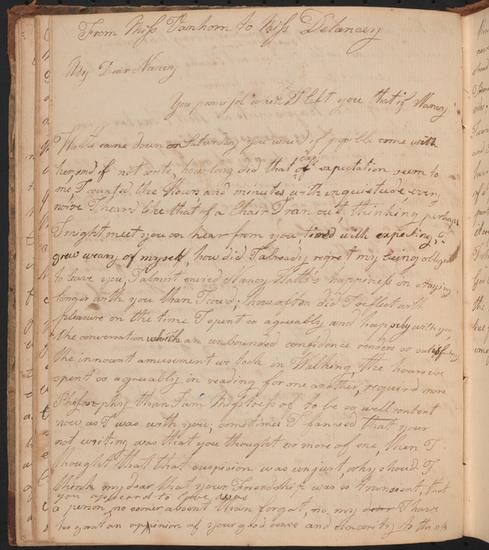 From Miss Vanhorn to Miss Delancey
My Dear Nancy
You promised when I left you that if Nancy
Watts came down on Saturday you wou'd if posible come with
her, and if not write, how long did that of expectation seem to
me I counted the Hours and minutes with inquietude, every
noise I heard like that of a Chair I ran out, thinking perhaps
I might meet you or hear from you, tired with expecting, I
grew weary of myself, how did I already regret my being obliged
to leave you, I almost envied Nancy Watts's happiness in staying
longer with you than I cou'd, how often did I reflect with
pleasure on the time I spent so agreeably and happily with you
the conversation which an unbounded confidence renders so satisfactory
the innocent amusement we took in Walking, the hours we
spent so agreeably in reading for one another, required more
Phylosophy than I am Mistress of to be so well content
now as I was with you, sometimes I fansied that your
not writing was that you thought no more of me, then I
thought that that suspicion was unjust, why should I
think my dear that your Friendship was so transient, that
you appeared to Love, was
a person, no sooner absent than forgot, no, my dear I have
too great an opinion of your good sence and sincerity to think